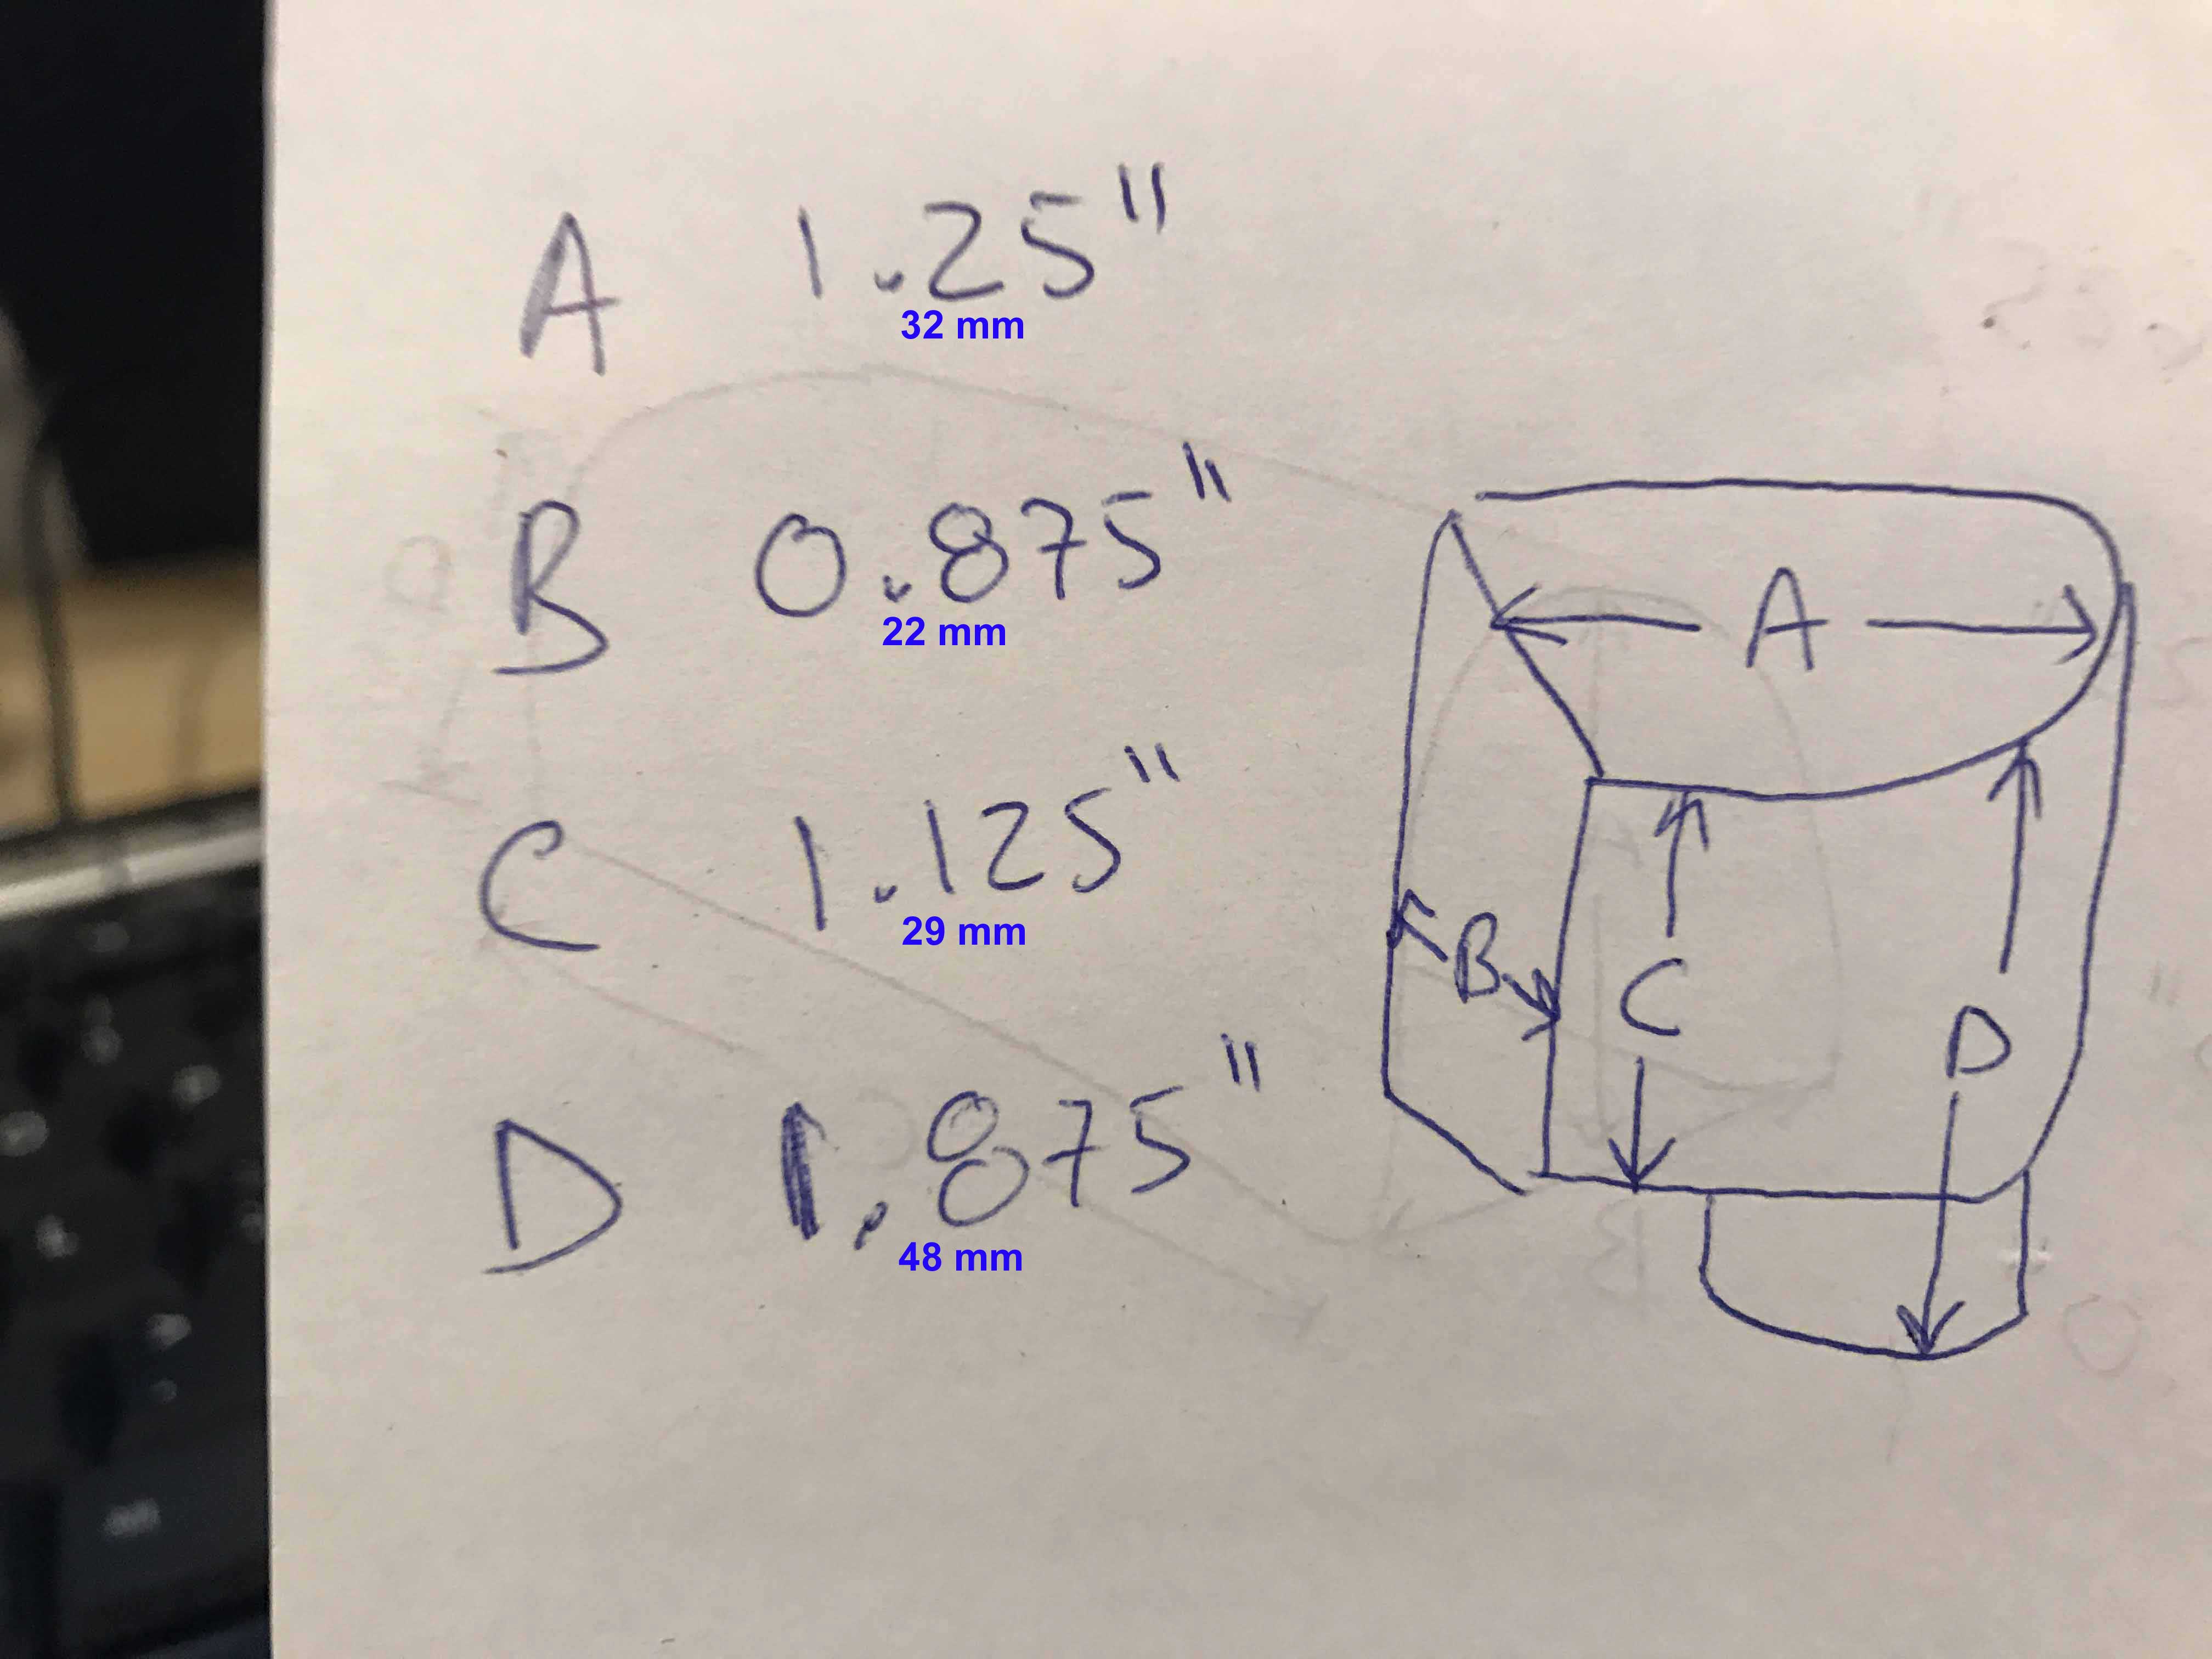 A 1.25"
32 mm
B 0.875"
22 mm
C 1.125"
29 mm
D 1.875"
48 mm
A
B
C
D